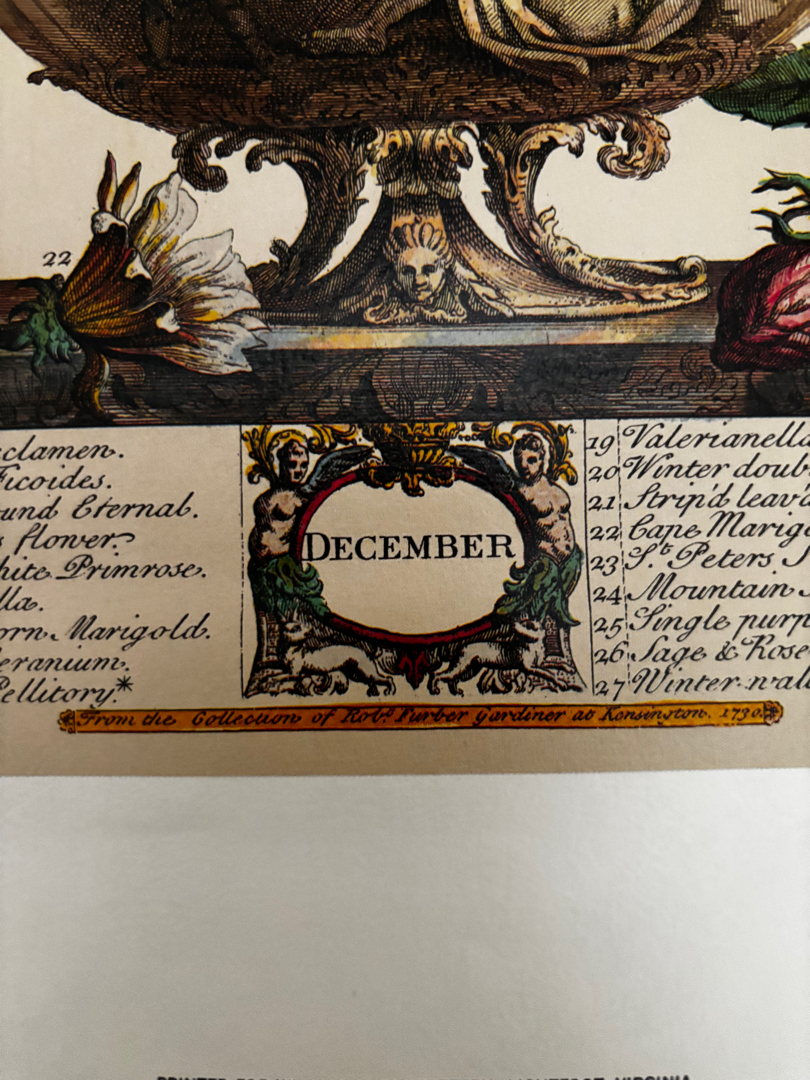 22
clamen.
Ficoides.
und Eternal.
s flower
hite Primrose.
lla.
orn Marigold.
eranium.
Pellitory.*
DECEMBER
19 Valerianella
20 Winter doub
21 Strip'd leav'd
22 Cape Marig
23 St. Peters
24 Mountain
25 Single purp
26 Sage & Rose
27 Winter wall
From the Collection of Robt. Furber Gardiner at Kensington. 1730.
VIRGINIA